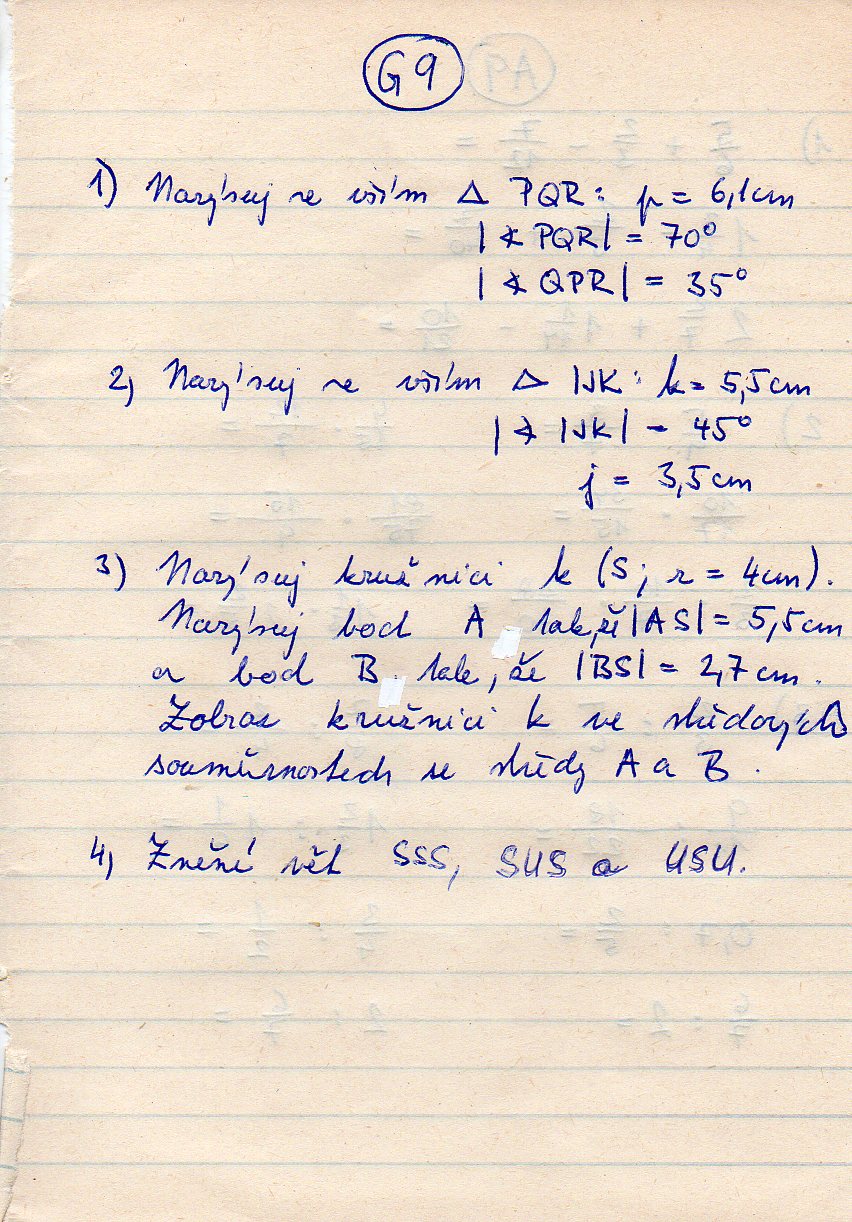 G9
1) Narýsuj se vším △ PQR: p = 6,1cm
|∢ PQR| = 70°
|∢ QPR| = 35°
2) Narýsuj se vším △ IJK: k = 5,5cm
|∢ IJK| = 45°
j = 3,5cm
3) Narýsuj kružnici k (S; r = 4cm).
Narýsuj bod A tak, že |AS| = 5,5cm
a bod B tak, že |BS| = 2,7cm.
Zobraz kružnici k ve středových
souměrnostech se středy A a B.
4) Znění vět SSS, SUS a USU.